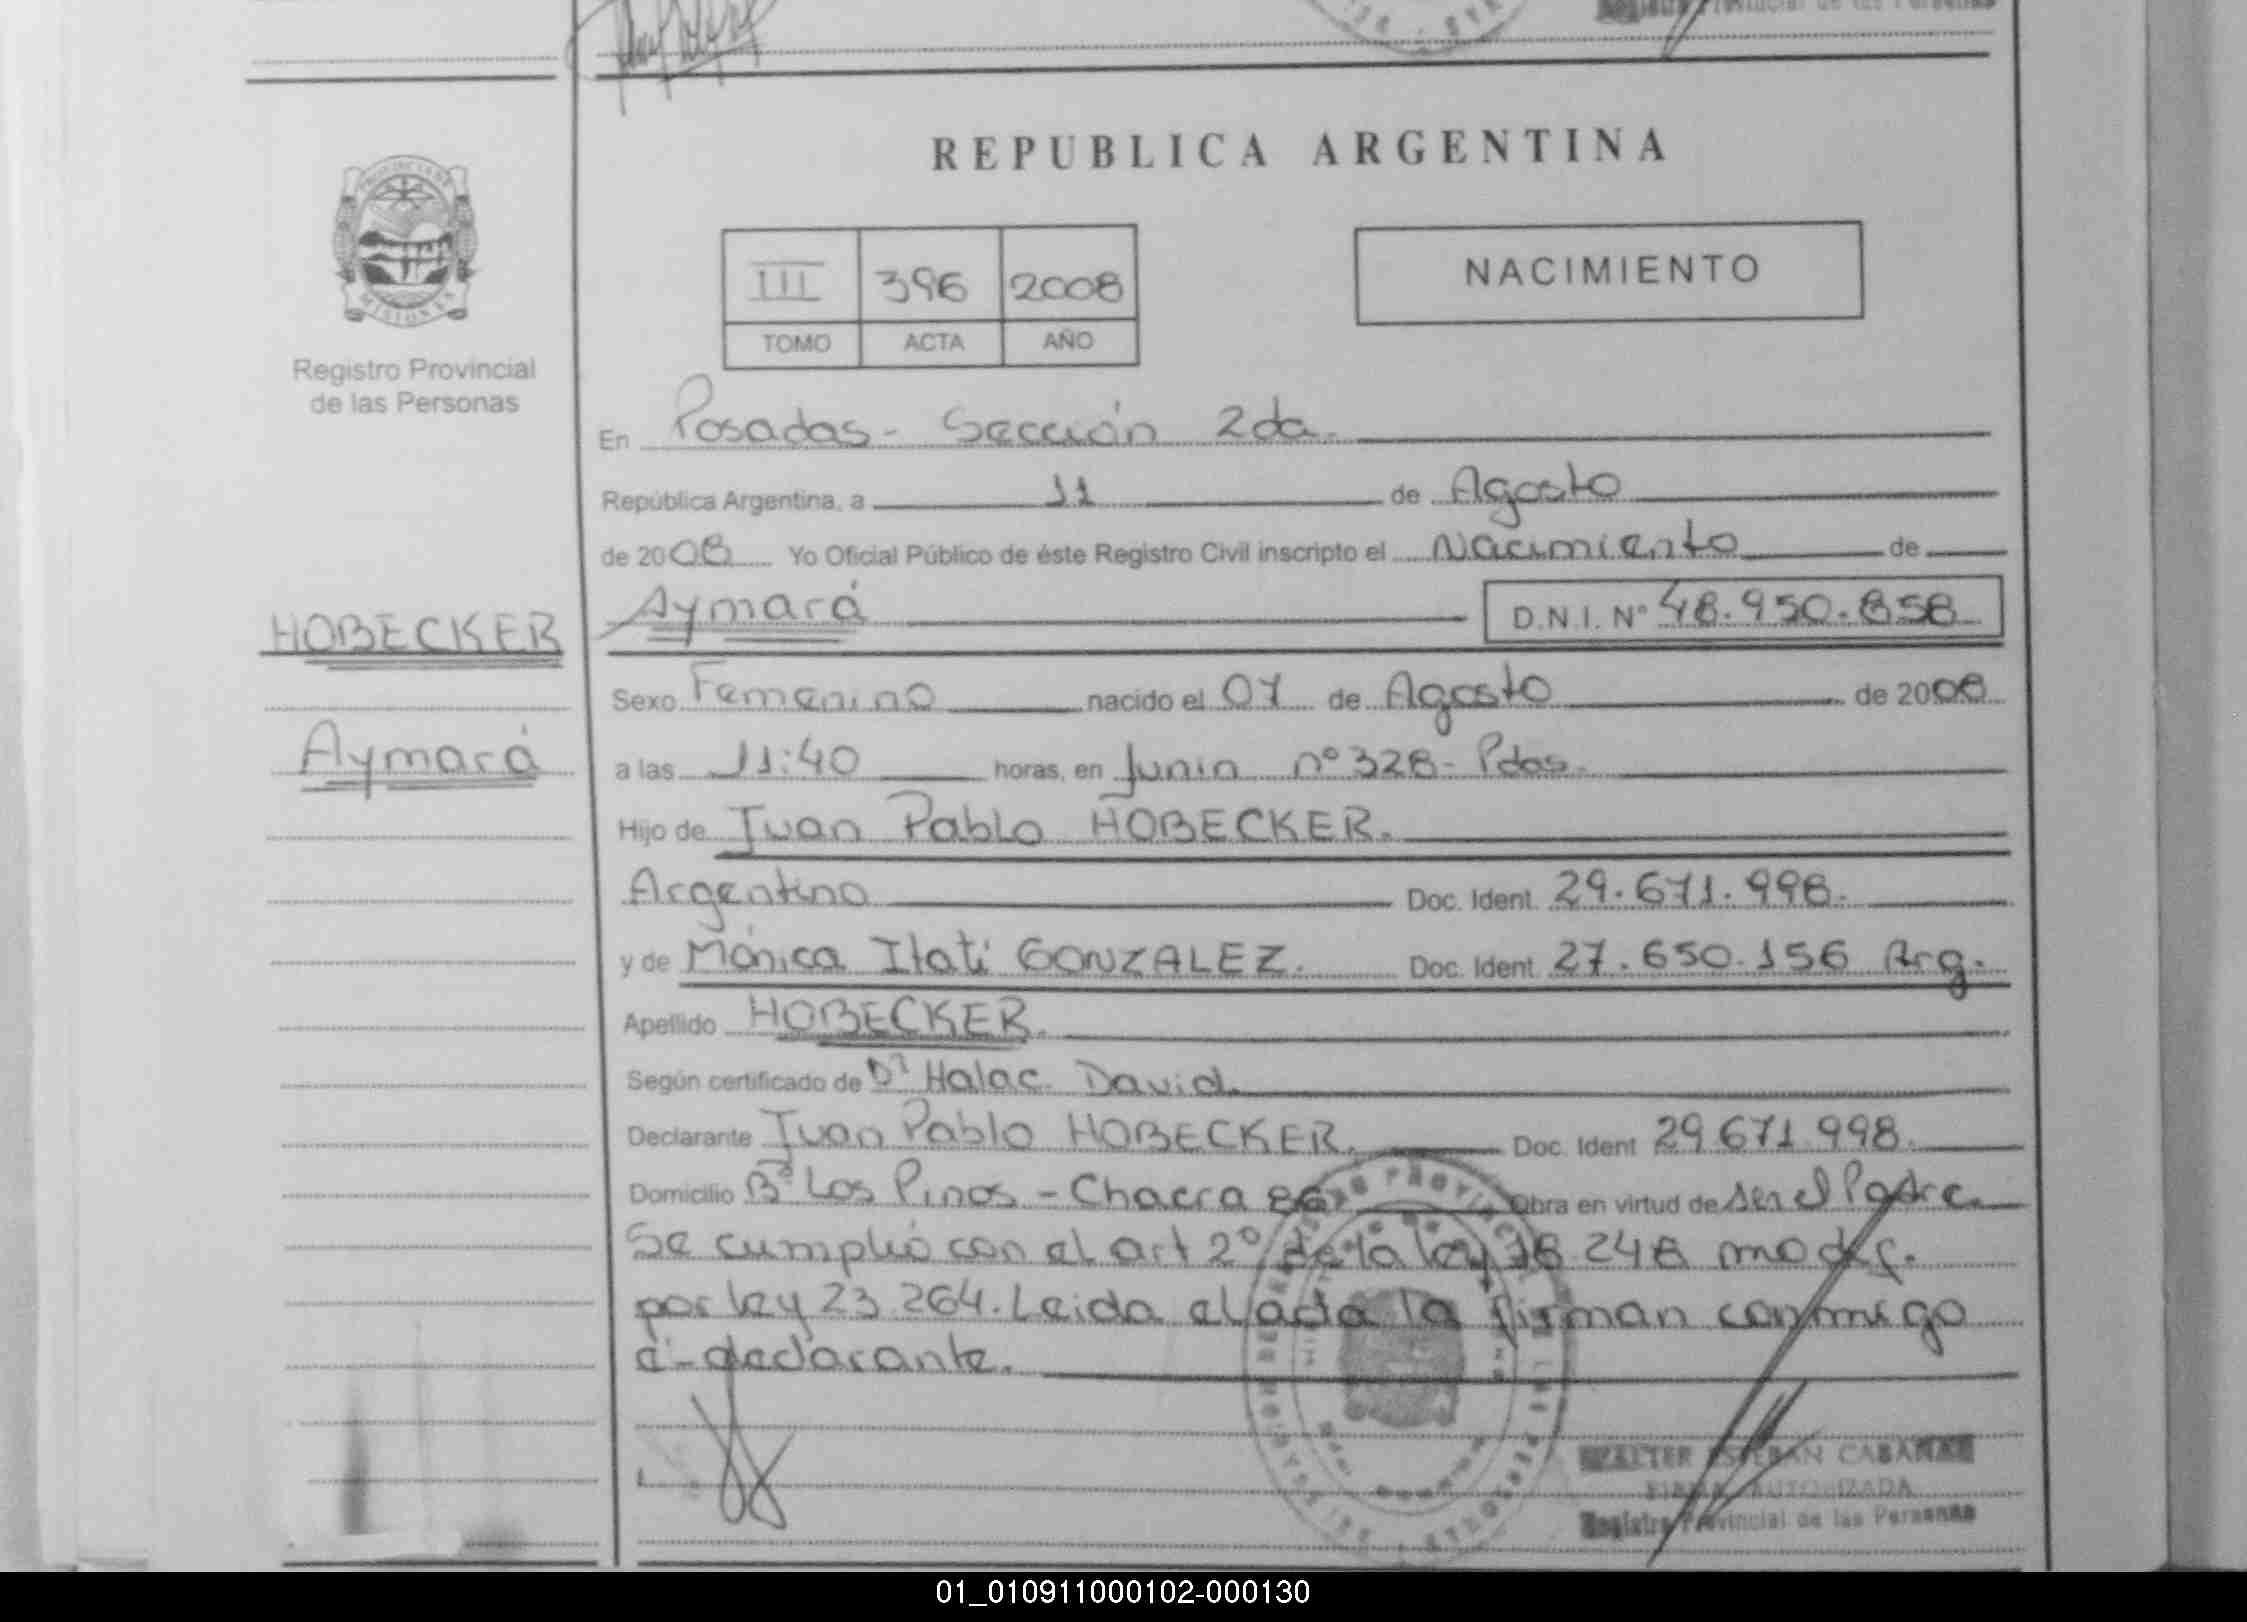 Registro Provincial de las Personas
REPUBLICA ARGENTINA
PROVINCIA DE
MISIONES
Registro Provincial
de las Personas
III 396 2008
TOMO ACTA AÑO
NACIMIENTO
En Posadas - Sección 2da.
República Argentina, a 11 de Agosto
de 2008 Yo Oficial Público de éste Registro Civil inscripto el Nacimiento de
HOBECKER
Aymará
Aymará D.N.I. Nº 48.950.858
Sexo Femenino nacido el 07 de Agosto de 2008
a las 11:40 horas, en Junin nº 328 - Pdas.
Hijo de Juan Pablo HOBECKER.
Argentino Doc. Ident. 29.671.998.
y de Mónica Itatí GONZALEZ. Doc. Ident. 27.650.156 Arg.
Apellido HOBECKER.
Según certificado de Dr Halac David.
Declarante Juan Pablo HOBECKER. Doc. Ident 29.671.998.
Domicilio Bº Los Pinos - Chacra 86 Obra en virtud de ser el Padre.
Se cumplió con el art 2º de la ley 18.248 modif.
por ley 23.264. Leida el acta la firman conmigo
el declarante.
WALTER ESTEBAN
FIRMA AUTORIZADA
Registro Provincial de las Personas
01_010911000102-000130